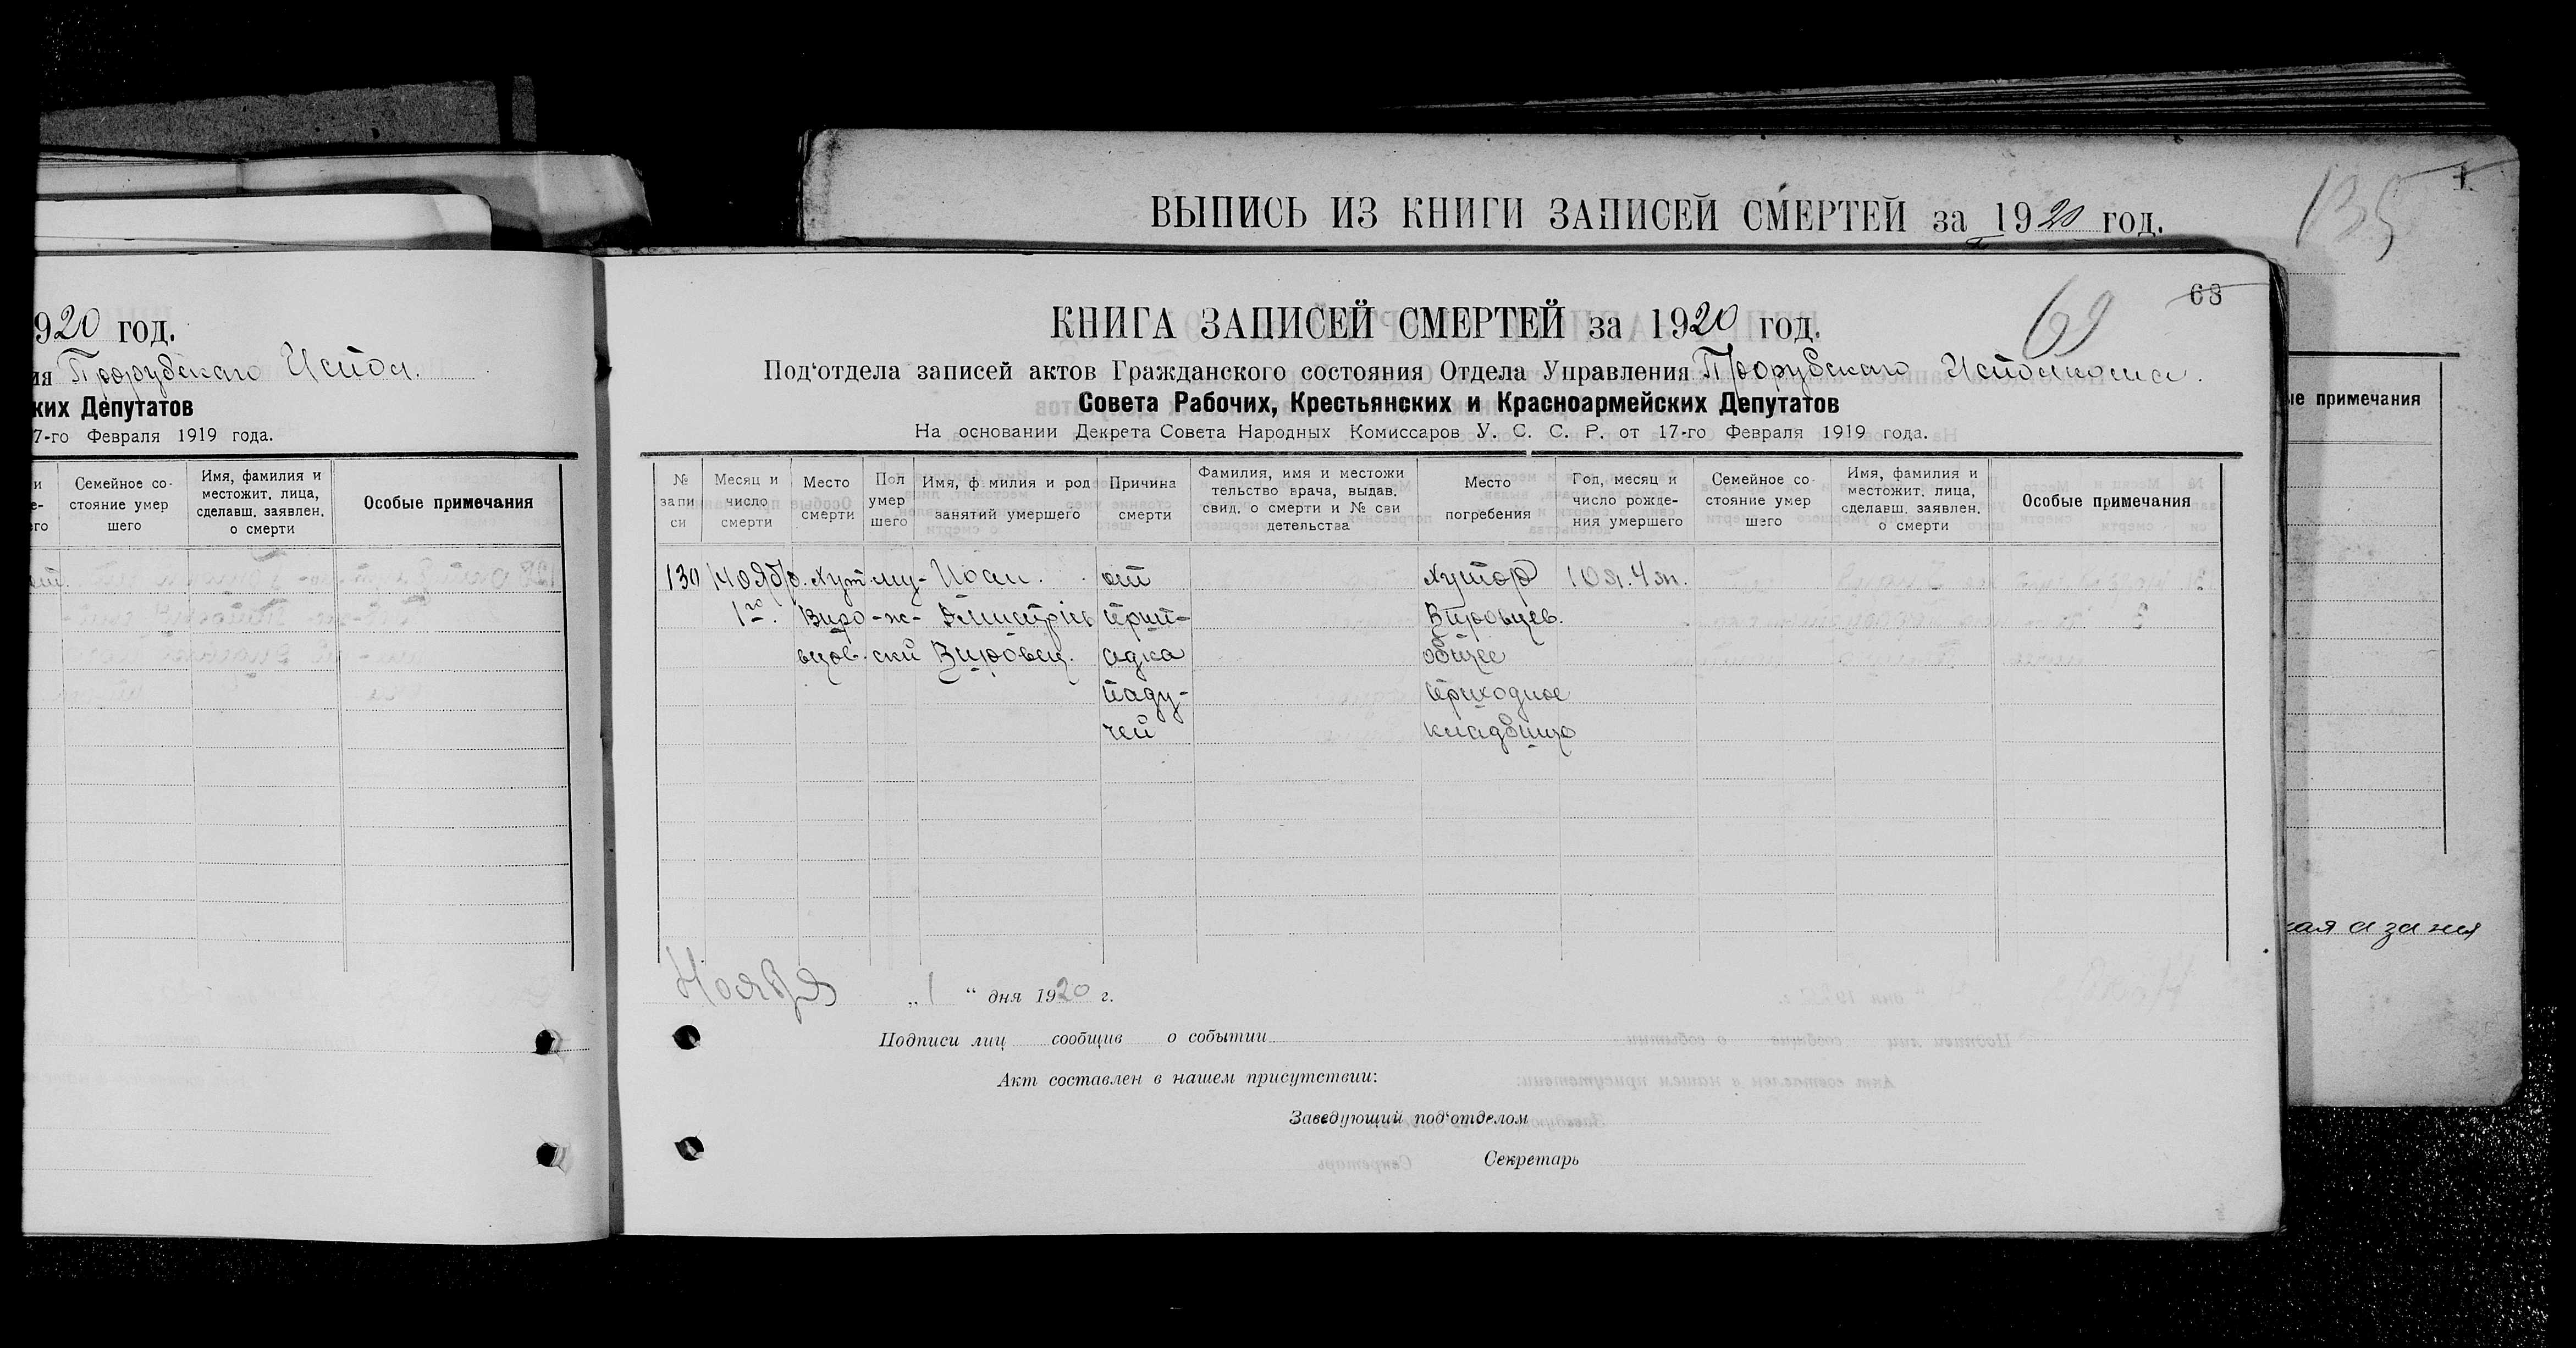 ВЫПИСЬ ИЗ КНИГИ ЗАПИСЕЙ СМЕРТЕЙ за 1920 год.
135
ые примечания
кая а за ня
920 год.
ия
ких Депутатов
7-го Февраля 1919 года.
Семейное со-
стояние умер
шего
Имя, фамилия и
местожит. лица,
сделавш. заявлен.
о смерти
Особые примечания
68
69
КНИГА ЗАПИСЕЙ СМЕРТЕЙ за 1920 год.
Под‘отдела записей актов Гражданского состояния Отдела Управления
Совета Рабочих, Крестьянских и Красноармейских Депутатов
На основании Декрета Совета Народных Комиссаров У. С. С. Р. от 17-го Февраля 1919 года.
№
запи
си
Месяц и
число
смерти
Место
смерти
Пол
умер
шего
Имя, фамилия и род
занятий умершего
Причина
смерти
Фамилия, имя и местожи
тельство врача, выдав.
свид. о смерти и № сви
детельства
Место
погребения
Год, месяц и
число рожде-
ния умершего
Семейное со
стояние умер
шего
Имя, фамилия и
местожит. лица,
сделавш. заявлен.
о смерти
Особые примечания
130
Ноябр.
1го.
Хут.
Виро-
вцов.
му-
-ж-
ский
Иоан.
Дмитрiев
Вировец.
от
прип-
адка
паду-
чей
Хутор
Вировцев.
общее
приходное
кладбище
10 л. 4 м.
Ноября „1“ дня 1920 г.
Подписи лиц сообщив о событии
Акт составлен в нашем присутствии:
Заведующий под‘отделом
Секретарь